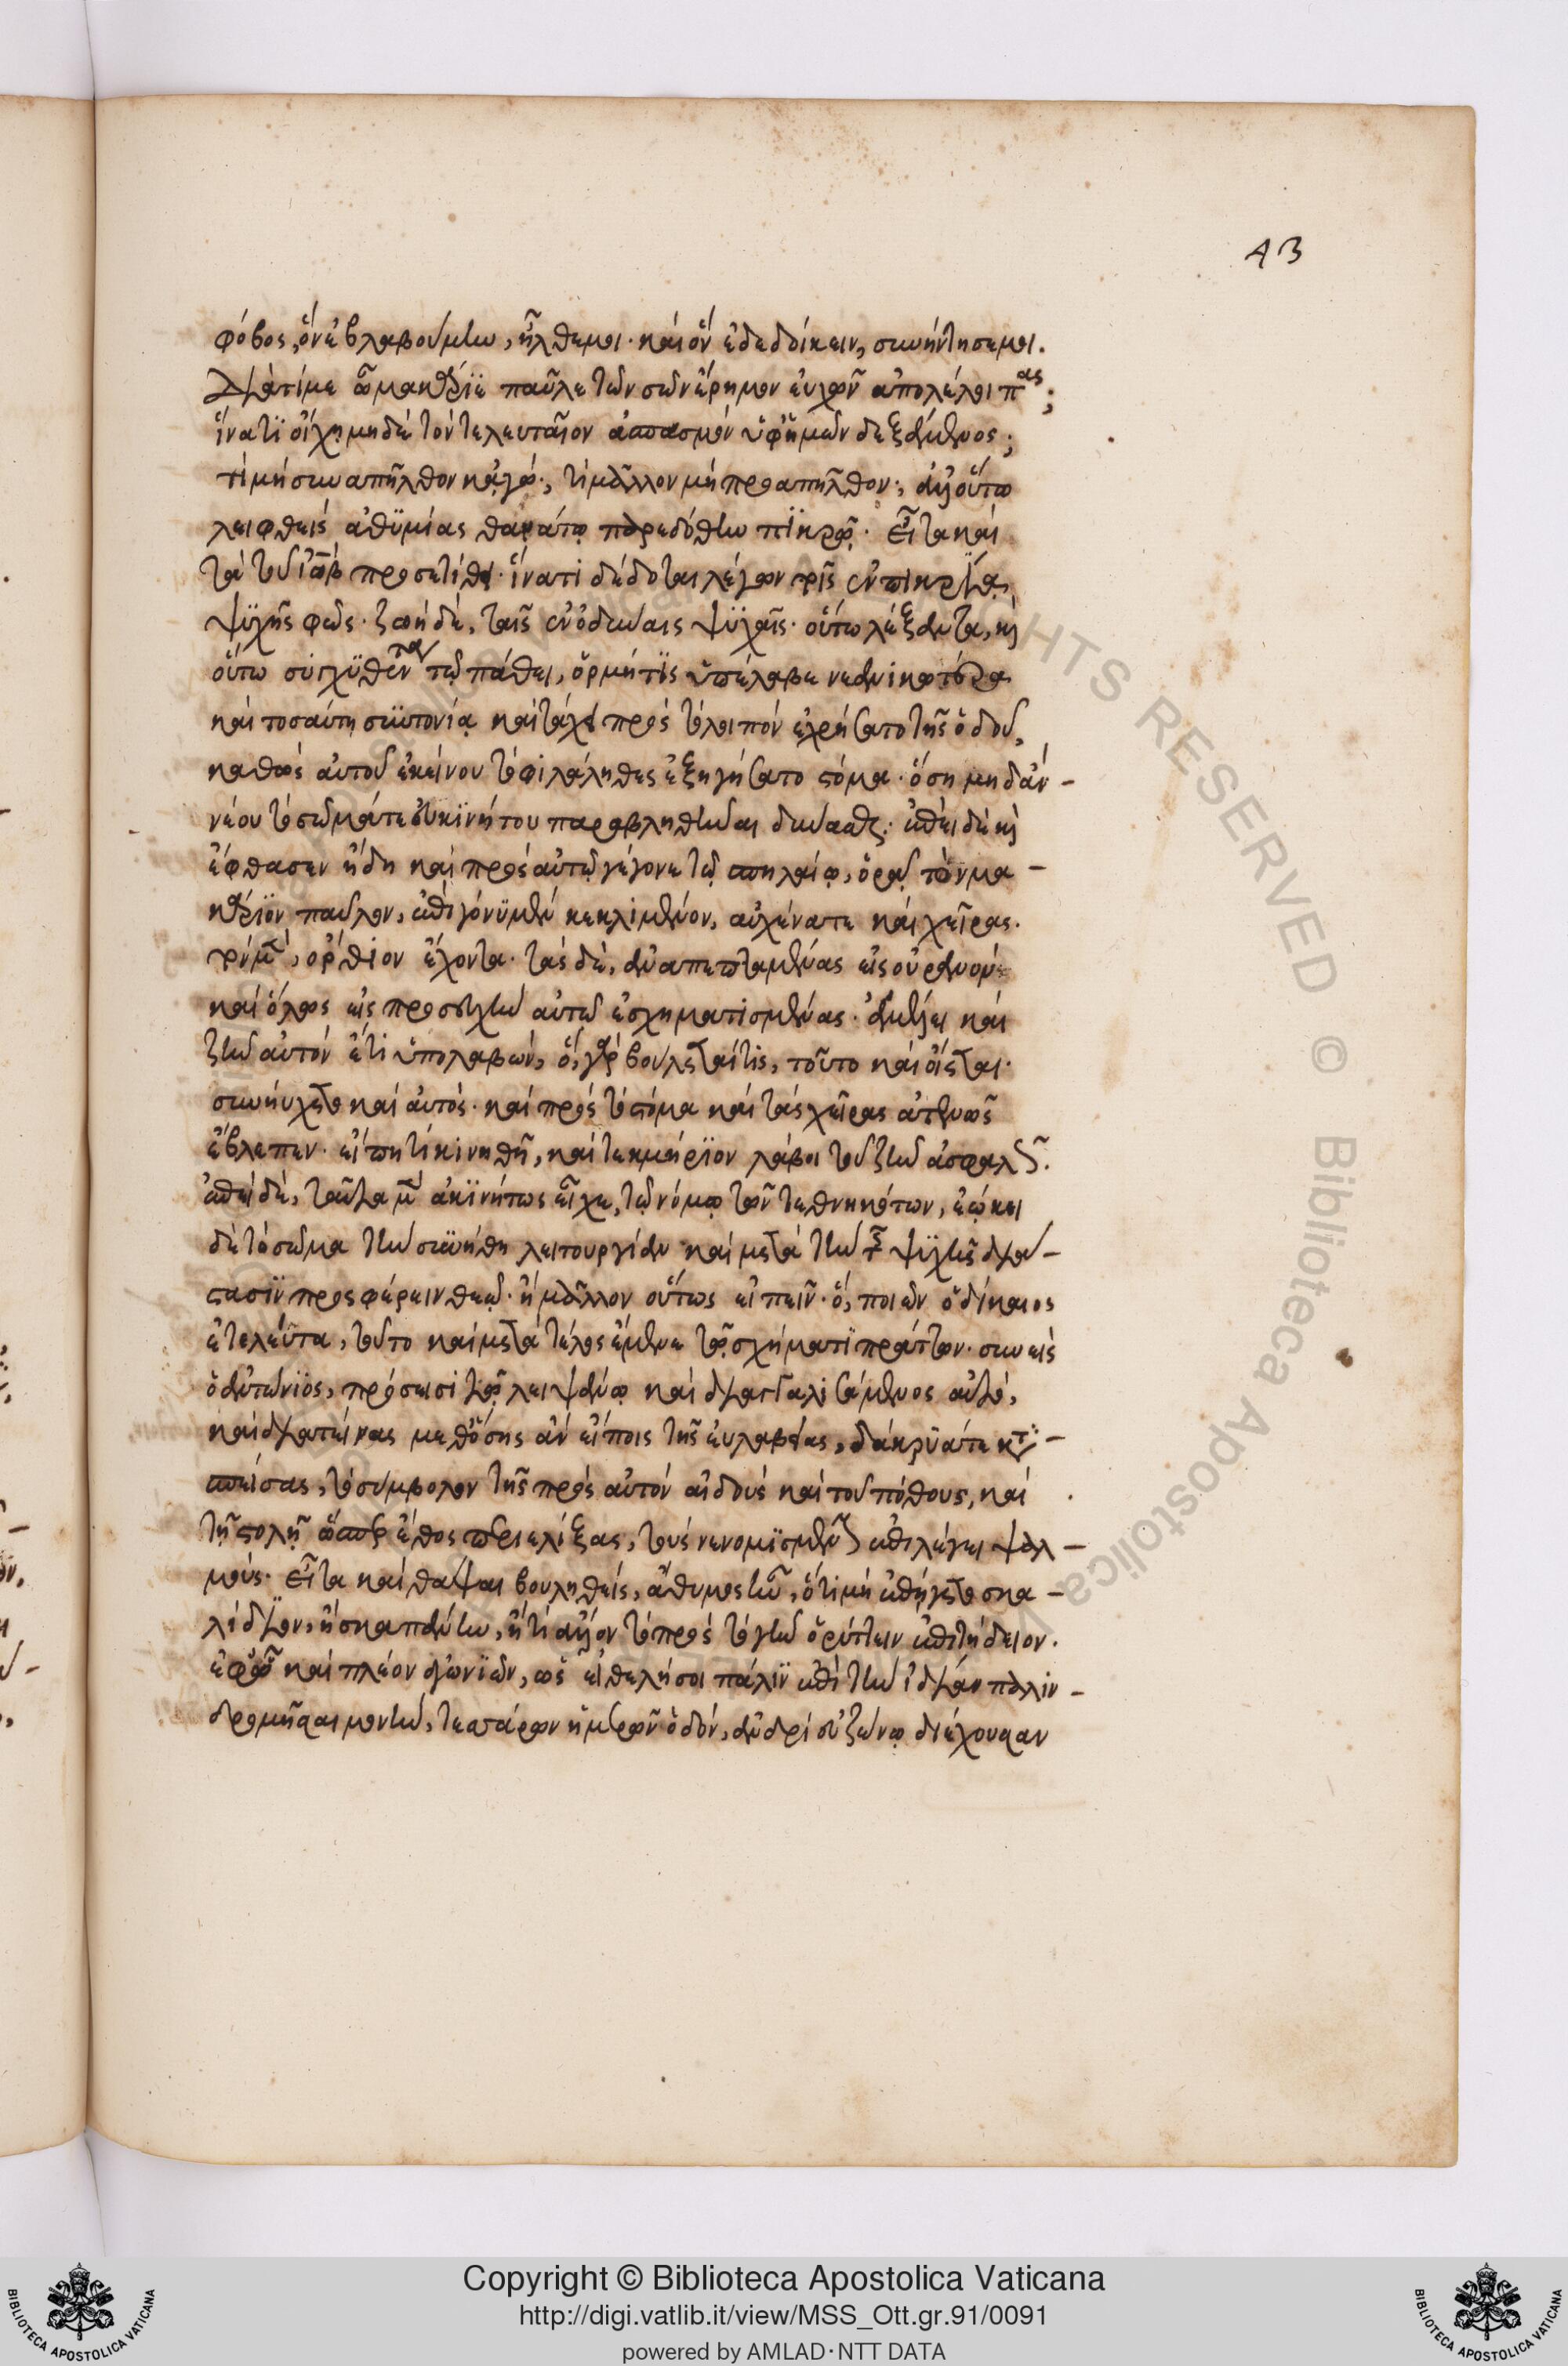 43
φόβος, ὃν εὐλαβούμην, ἦλθέ μοι· καὶ ὃν ἐδεδοίκειν, συνήντησέ μοι.
διατί με ὦ μακάριε παῦλε τῶν σῶν ἔρημον εὐχῶν ἀπολέλοιπας;
ἵνα τί οἴχῃ μηδὲ τὸν τελευταῖον ἀσπασμὸν ὑφ' ἡμῶν δεξάμενος;
τί μή συναπῆλθον κἀγώ; τί μᾶλλον μὴ προαπῆλθον; ἀλλ' οὕτω
λειφθεὶς ἀθυμίας θανάτῳ παρεδόθην πικρῷ· εἶτα καὶ
τὰ τοῦ ἰὼβ προσετίθει· ἵνα τί δέδοται λέγων τοῖς ἐν πικρίᾳ
ψυχῆς φῶς· ζωὴ δὲ, ταῖς ἐν ὀδύναις ψυχαῖς· οὕτω λέξαντα, καὶ
οὕτω συσχεθέντα τῷ πάθει, ὁρμή τις ὑπέλαβε νεανικωτέρα
καὶ τοσαύτῃ συντονίᾳ καὶ τάχει πρὸς τὸ λοιπὸν ἐχρήσατο τῆς ὁδοῦ,
καθὼς αὐτοῦ ἐκείνου τὸ φιλάληθες ἐξηγήσατο στόμα· ὅση μηδ' ἂν
νέου τὸ σῶμά τε εὐκινήτου παραβληθῆναι δύνασθαι· ἐπεὶ δὲ καὶ
ἔφθασεν ἤδη καὶ πρὸς αὐτῷ γέγονε τῷ σπηλαίῳ, ὁρᾷ τὸν μα
κάριον παῦλον, ἐπὶ γόνυ μὲν κεκλιμένον, αὐχένα τε καὶ χεῖρας·
τὸν μὲν, ὄρθιον ἔχοντα· τὰς δὲ, ἀναπεπταμένας εἰς οὐρανὸν
καὶ ὅλως εἰς προσευχὴν αὐτῷ ἐσχηματισμένας· ἀμέλει καὶ
ζῆν αὐτὸν ἔτι ὑπολαβὼν, ὃ, γὰρ βούλεταί τις, τοῦτο καὶ οἴεται·
συνηύχετο καὶ αὐτὸς· καὶ πρὸς τὸ στόμα καὶ τὰς χεῖρας ἀτενῶς
ἔβλεπεν· εἴ πῃ τί κινηθῇ, καὶ τεκμήριον λάβοι τοῦ ζῆν ἀσφαλές.
ἐπεὶ δὲ, ταῦτα μὲν ἀκινήτως εἶχε, τῷ νόμῳ τῶν τεθνηκότων, ἐῴκει
δὲ τὸ σῶμα τὴν συνήθη λειτουργίαν καὶ μετὰ τὴν τῆς ψυχῆς διάσ
τασιν προσφέρειν θεῷ· ἢ μᾶλλον οὕτως εἰπεῖν· ὃ, ποιῶν ὁ δίκαιος
ἐτελεύτα, τοῦτο καὶ μετὰ τέλος ἔμενε τῷ σχήματι πράττων· συνεὶς
ὁ ἀντώνιος, πρόσεισι τῷ λειψάνῳ καὶ διαστειλάμενος αὐτό,
καὶ διατείνας μεθ' ὅσης ἂν εἴποις τῆς εὐλαβείας, δάκρυά τε κατα
σπείσας, τὸ σύμβολον τῆς πρὸς αὐτὸν αἰδοῦς καὶ τοῦ πόθους, καὶ
τῇ στολῇ ὥσπερ ἔθος περιελίξας, τοὺς νενομισμένους ἐπιλέγει ψαλ
μούς· εἶτα καὶ θάψαι βουληθεὶς, ἄθυμος ἦν, ὅτι μὴ ἐπήγετο σκα
λίδιον, ἢ σκαπάνην, ἤ τι ἄλλον τὸ πρὸς τὸ γῆν ὀρύττειν ἐπιτήδειον·
ἐφ' ᾧ καὶ πλέον ἀγωνιῶν, ὡς εἰ θελήσοι πάλιν ἐπὶ τὴν ἰδίαν παλιν
δρομῆσαι μονὴν, τεσσάρων ἡμερῶν ὁδὸν, ἀνδρὶ εὐζώνῳ διέχουσαν
Copyright © Biblioteca Apostolica Vaticana
http://digi.vatlib.it/view/MSS_Ott.gr.91/0091
powered by AMLAD·NTT DATA